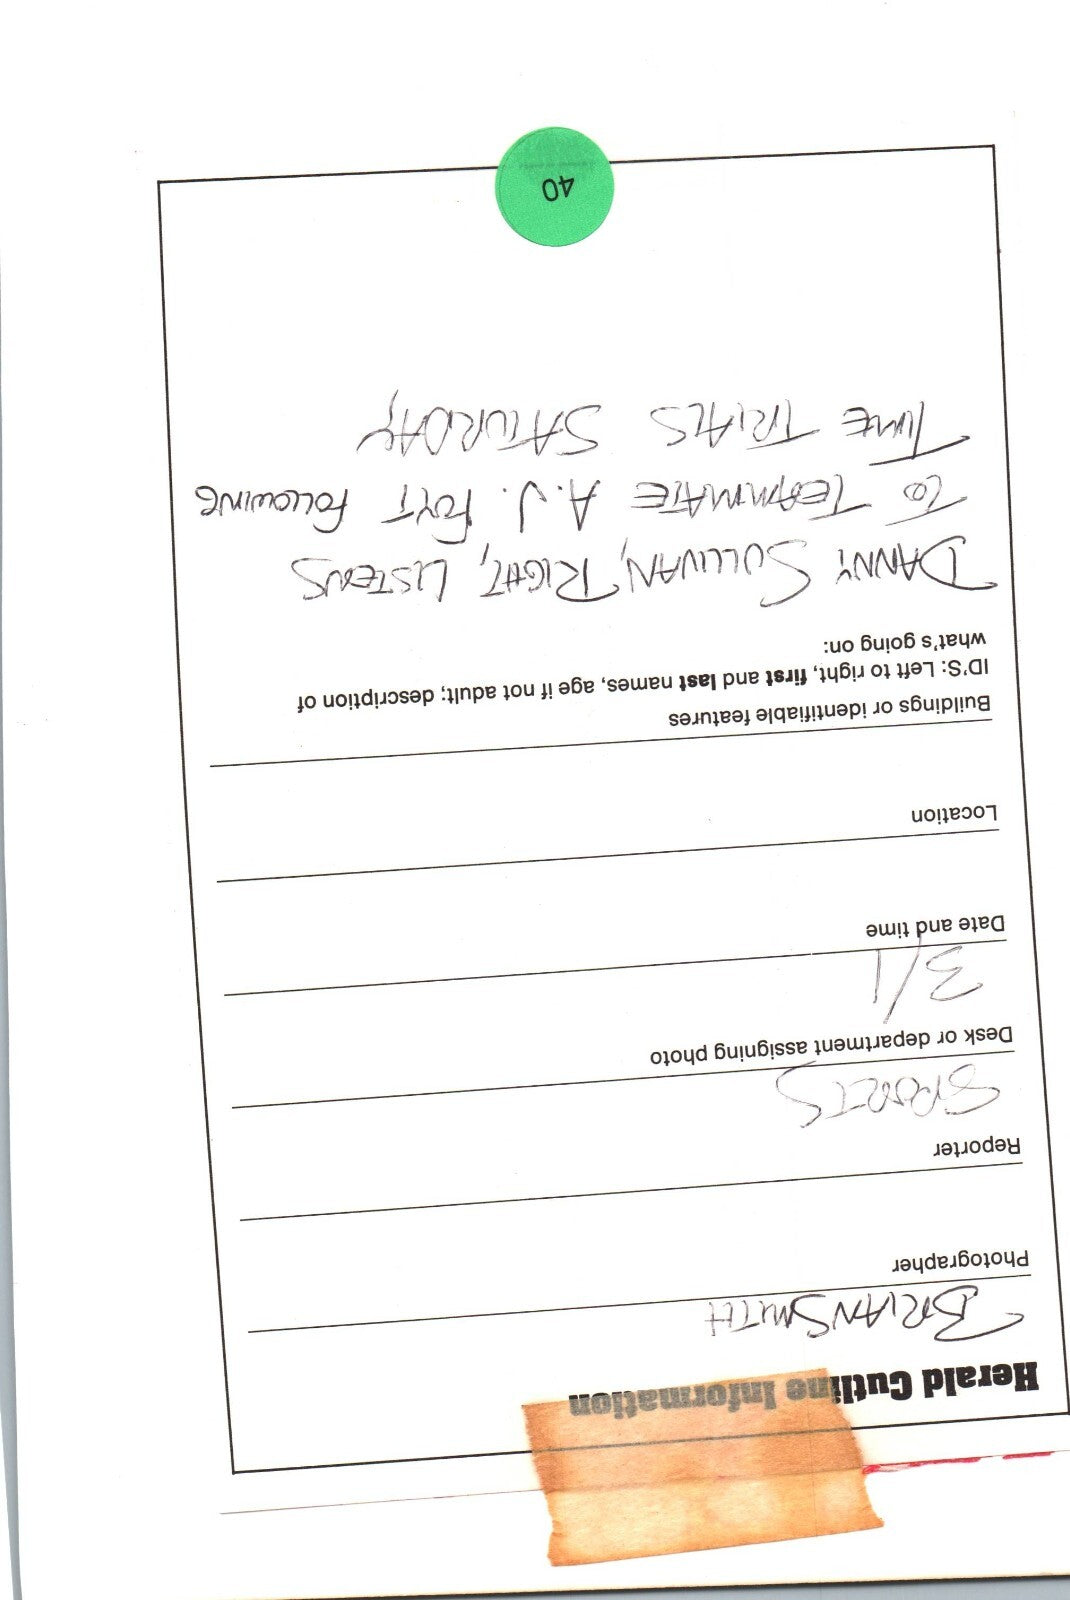 Herald Cutline Information
BRIAN SMITH
Photographer
Reporter
SPORTS
Desk or department assigning photo
3/1
Date and time
Location
Buildings or identifiable features
ID'S: Left to right, first and last names, age if not adult; description of
what's going on:
DANNY SULLIVAN, RIGHT, LISTENS
TO TEAMMATE A.J. FOYT FOLLOWING
TIME TRIALS SATURDAY,
40